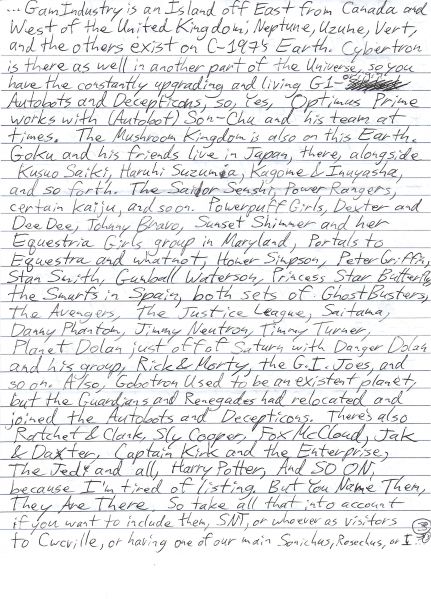 ... GamIndustry is an Island off East from Canada and
West of the United Kingdom; Neptune, Uzune, Vert,
and the others exist on C-1975 Earth. Cybertron
is there as well in another part of the Universe, so you
have the constantly upgrading and living G1-original
Autobots and Decepticons, so, Yes, Optimus Prime
works with (Autobot) Son-Chu and his team at
times. The Mushroom Kingdom is also on this Earth.
Goku and his friends live in Japan, there, alongside
Kusuo Saiki, Haruhi Suzumia, Kagome & Inuyasha,
and so forth. The Sailor Senshi, Power Rangers,
certain kaiju, and so on. Powerpuff Girls, Dexter and
Dee Dee, Johnny Bravo, Sunset Shimmer and her
Equestria Girls group in Maryland, Portals to
Equestra and whatnot, Homer Simpson, Peter Griffin,
Stan Smith, Gumball Waterson, Princess Star Butterfly,
the Smurfs in Spain, both sets of GhostBusters,
the Avengers, The Justice League, Saitama,
Danny Phantom, Jimmy Neutron, Timmy Turner,
Planet Dolan just off of Saturn with Danger Dolan
and his group, Rick & Morty, the G.I. Joes, and
so on. Also, Gobotron Used to be an existent planet,
but the Guardians and Renegades had relocated and
joined the Autobots and Decepticons. There's also
Ratchet & Clank, Sly Cooper, Fox McCloud, Jak
& Daxter, Captain Kirk and the Enterprise,
The Jedi and all, Harry Potter, And SO ON,
because I'm tired of listing. But You Name Them,
They Are There. So take all that into account
if you want to include them, SNT, or whoever as visitors
to Cwcville, or having one of our main Sonichus, Rosechus, or I